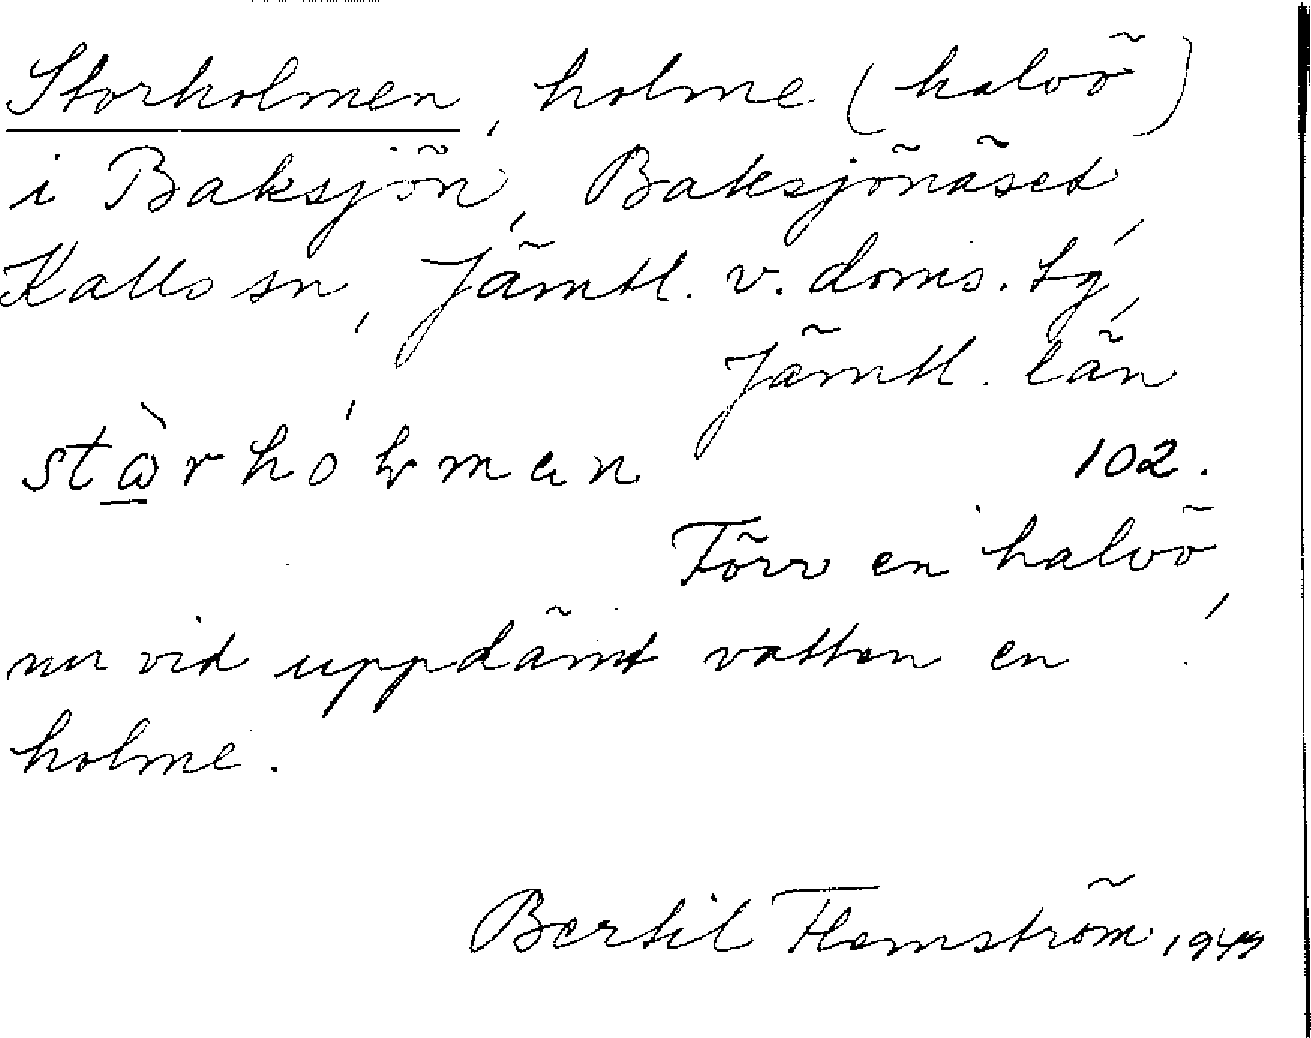 Storholmen, holme (halvö)
i Baksjön, Baksjönäset,
Kalls sn, Jämtl. v. doms. tg,
Jämtl. län
102.
Förr en halvö,
nu vid uppdämt vatten en
holme.
Bertil Flemström 1947